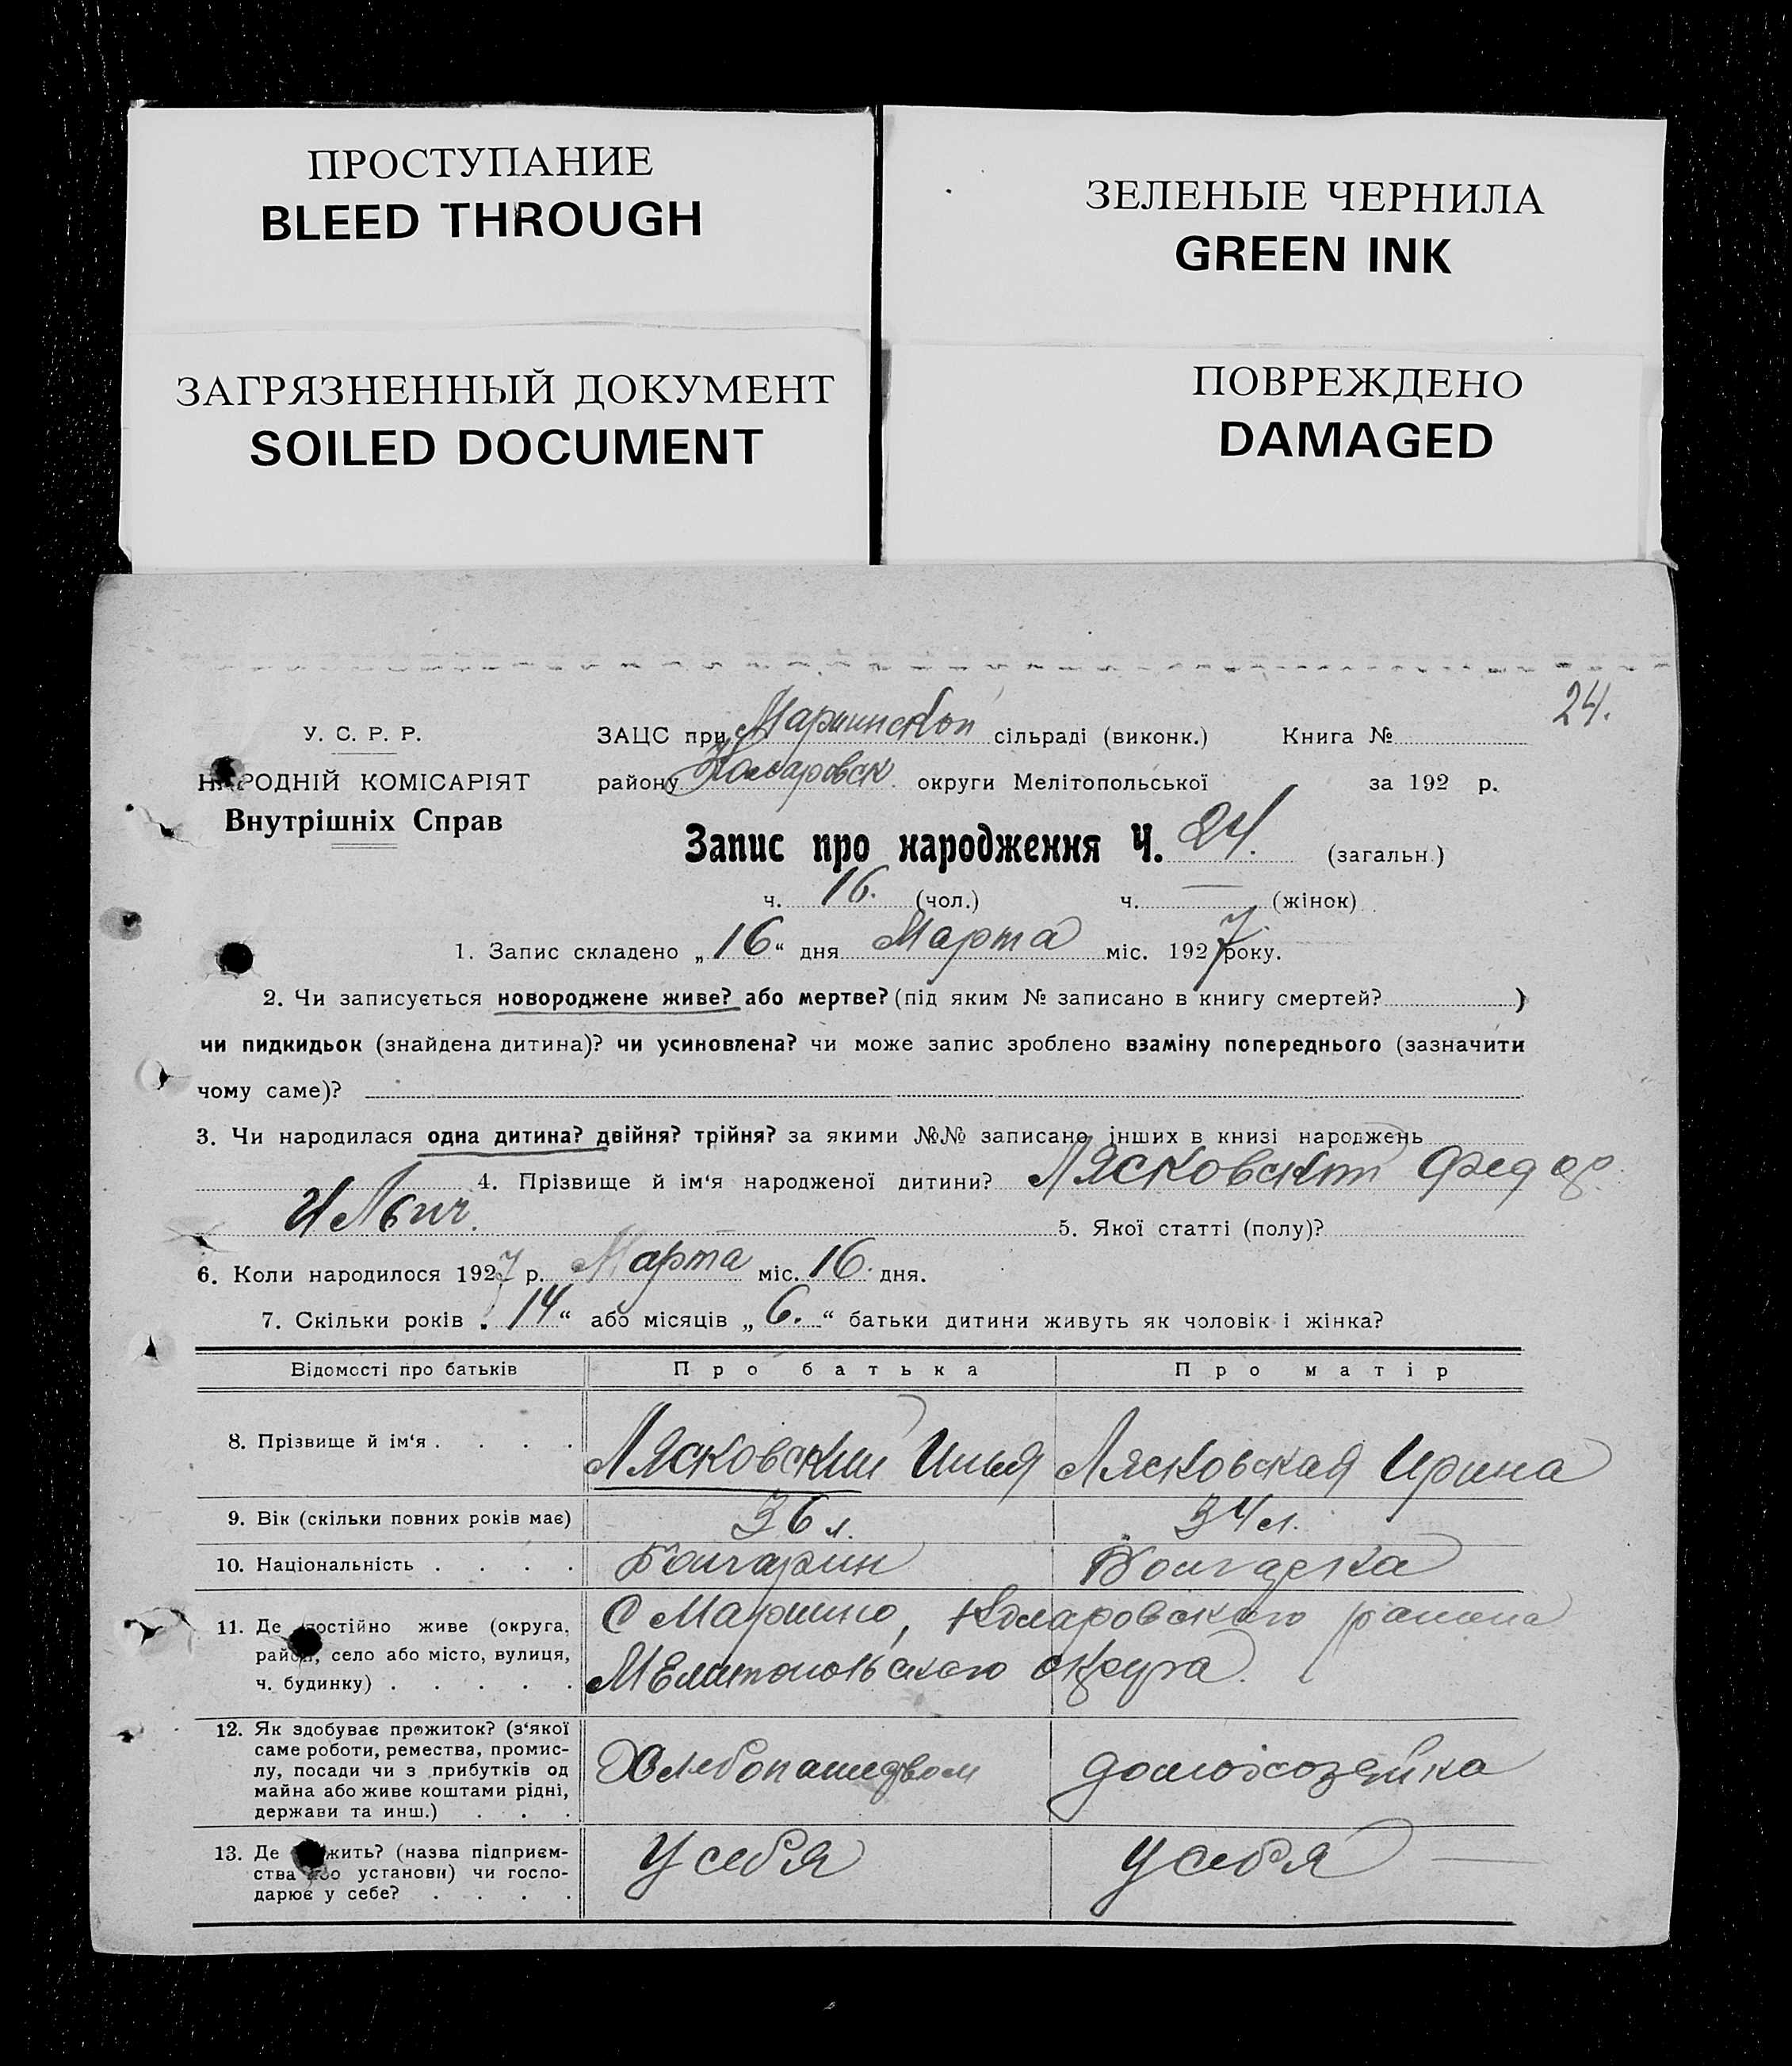 ПРОСТУПАНИЕ
BLEED THROUGH
ЗЕЛЕНЫЕ ЧЕРНИЛА
GREEN INK
ЗАГРЯЗНЕННЫЙ ДОКУМЕНТ
SOILED DOCUMENT
ПОВРЕЖДЕНО
DAMAGED
24.
У. С. Р. Р.
НАРОДНІЙ КОМІСАРІЯТ
Внутрішніх Справ
ЗАЦС при Мариинской сільраді (виконк.) Книга №
району Коларовск округи Мелітопольської за 192 р.
Запис про народження Ч. 24. (загальн.)
ч. 16. (чол.) ч. — (жінок)
1. Запис складено „16“ дня Марта міс. 1927 року.
2. Чи записується новороджене живе? або мертве? (під яким № записано в книгу смертей? )
чи пидкидьок (знайдена дитина)? чи усиновлена? чи може запис зроблено взаміну попереднього (зазначити
чому саме)?
3. Чи народилася одна дитина? двійня? трійня? за якими №№ записано інших в книзі народжень
4. Прізвище й ім‘я народженої дитини? Лясковский Федор
Ильич. 5. Якої статті (полу)?
6. Коли народилося 1927 р. Марта міс. 16. дня.
7. Скільки років „14“ або місяців „6.“ батьки дитини живуть як чоловік і жінка?
Відомості про батьків Про батька Про матір
8. Прізвище й ім‘я . . . . Лясковский Илья Лясковская Ирина
9. Вік (скільки повних років має) 36 л. 34 л.
10. Національність . . . . Болгарин Болгарка
11. Де постійно живе (округа,
район, село або місто, вулиця,
ч. будинку) . . . . .
С Марино, Коларовского района
Мелитопольского округа.
12. Як здобуває прожиток? (з‘якої
саме роботи, ремества, промис-
лу, посади чи з прибутків од
майна або живе коштами рідні,
держави та инш.) . . .
Хлебопашеством домохозяйка
13. Де служить? (назва підприєм-
ства або установи) чи госпо-
дарює у себе? . . . .
У себя У себя —